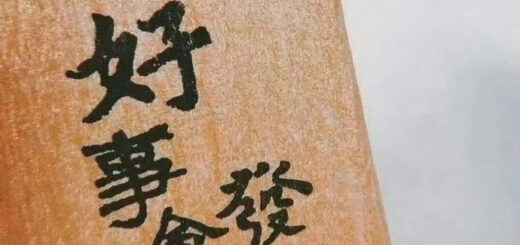 好事
發